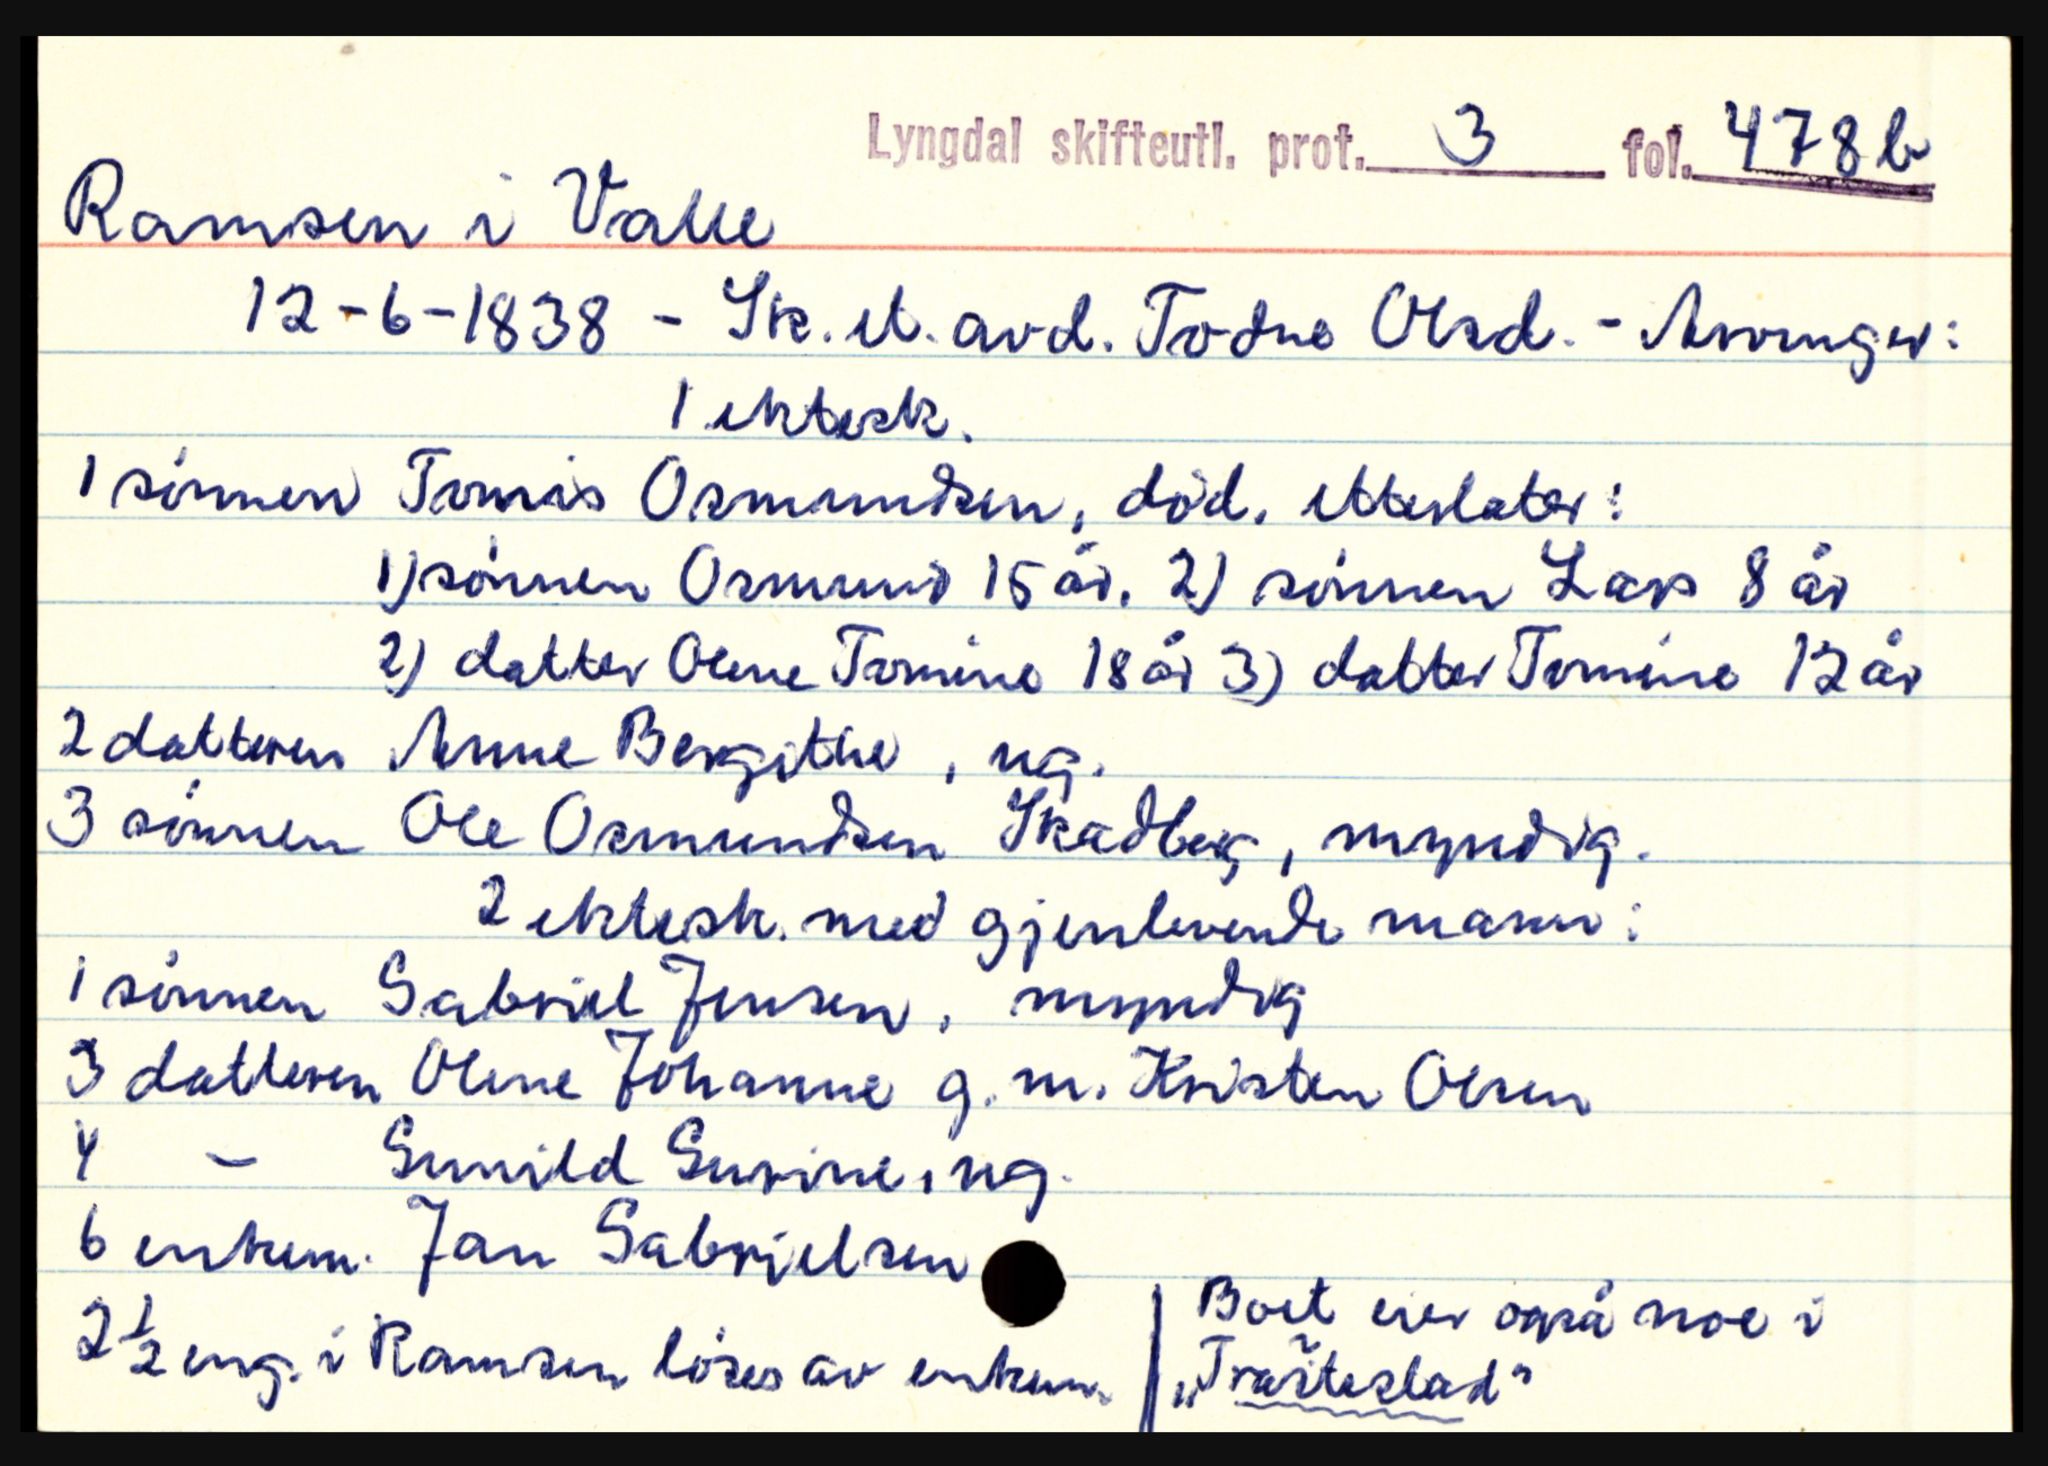 Lyngdal skifteutl. prot. 3 fol. 478b
Ramsen i Valle
12-6-1838 - Sk. et. avd. Todne Olsd. - Arvinger:
1 ektesk.
1 sønnen Tomis Osmundsen, død, etterlater:
1) sønnen Osmund 15 år, 2) sønnen Lars 8 år
2) datter Olene Tomine 18 år 3) datter Tomine 12 år
2 datteren Anne Bergithe, ug.
3 sønnen Ole Osmundsen Skadberg, myndig.
2 ektesk. med gjenlevende mann:
1 sønnen Gabriel Jensen, myndig
3 datteren Olene Johanne g. m. Kristen Olsen
4 - Gunild Surine, ug.
6 enkem. Jan Gabrielsen
2 1/2 eng. i Ramsen løses av enkem.
Boet eier også noe i
"Trașteslad"